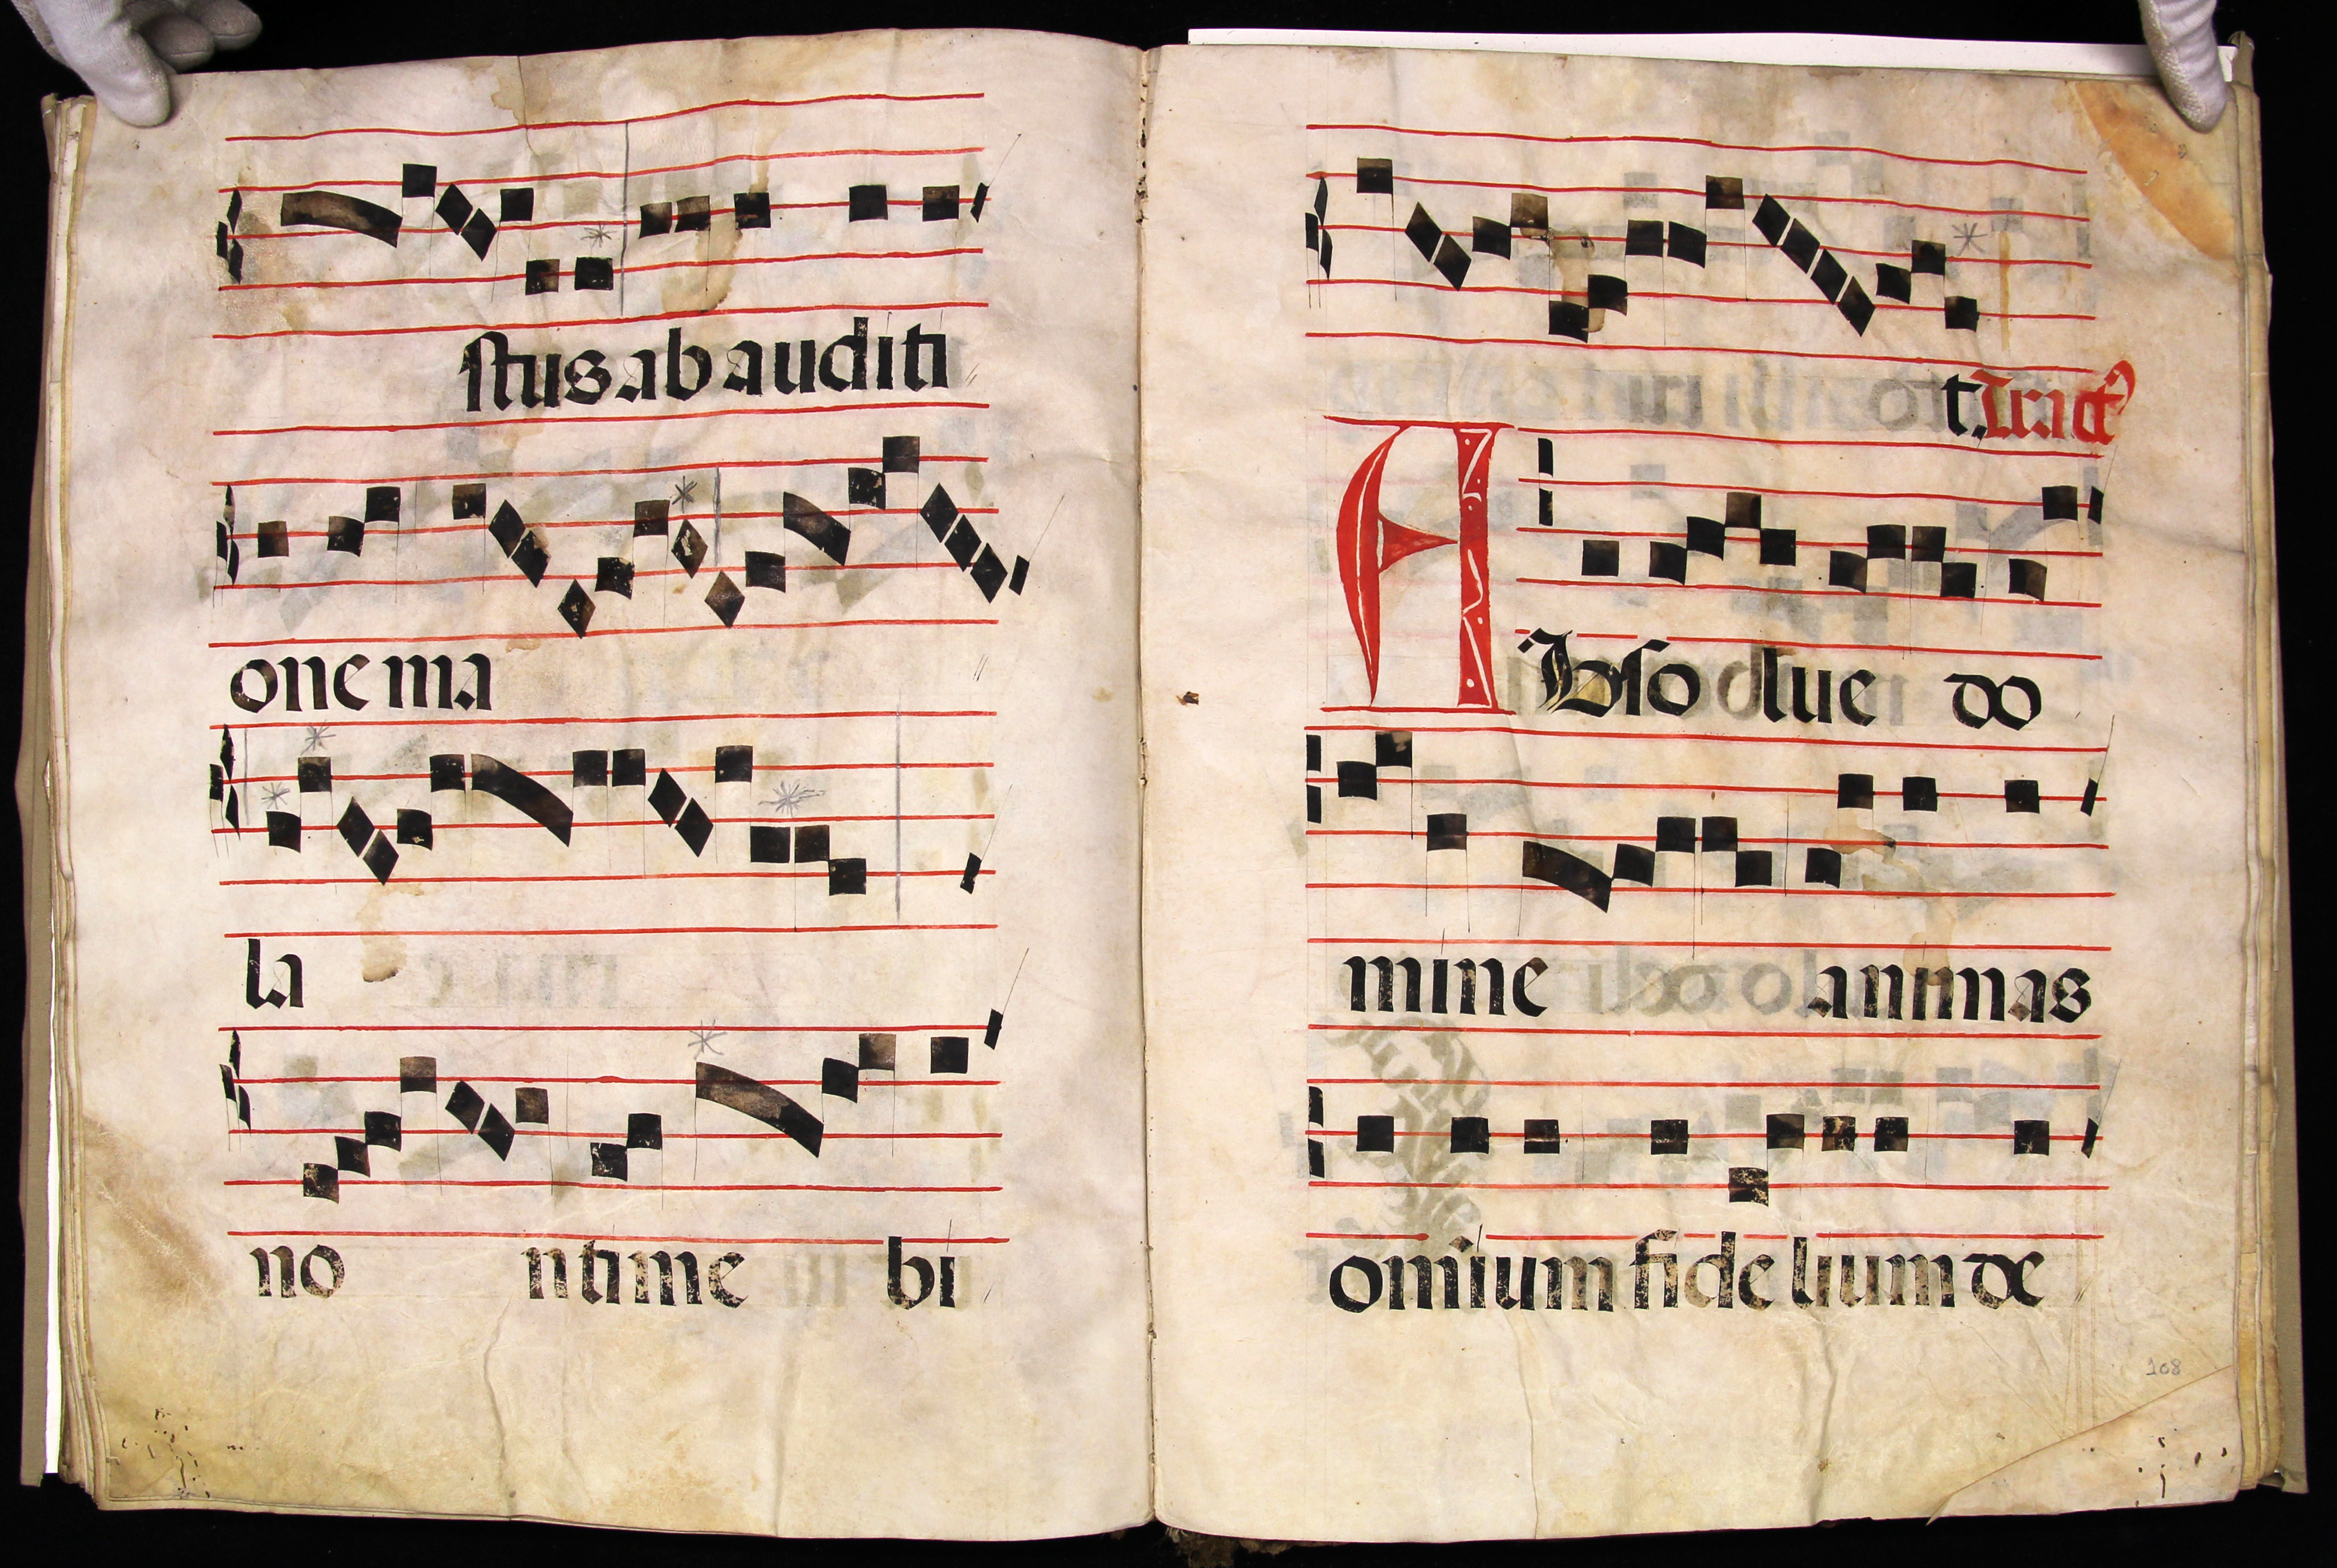 stus ab auditi
one ma
la
no n time bi
t. Tract
Absolue do
mine animas
omium fidelium de
108